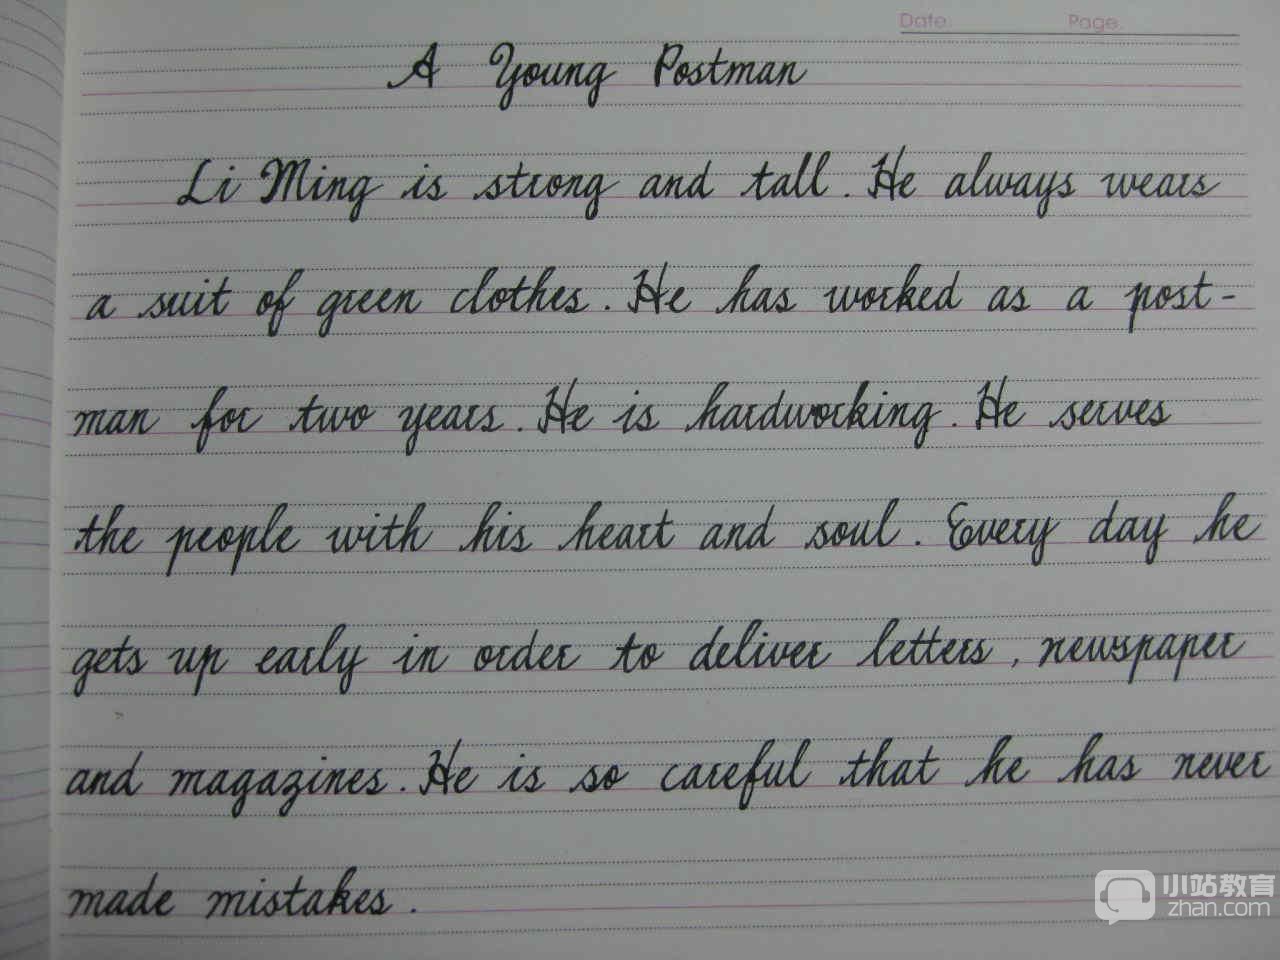 Date Page.
A Young Postman
Li Ming is strong and tall. He always wears
a suit of green clothes. He has worked as a post-
man for two years. He is hardworking. He serves
the people with his heart and soul. Every day he
gets up early in order to deliver letters, newspaper
and magazines. He is so careful that he has never
made mistakes.
小站教育
zhan.com